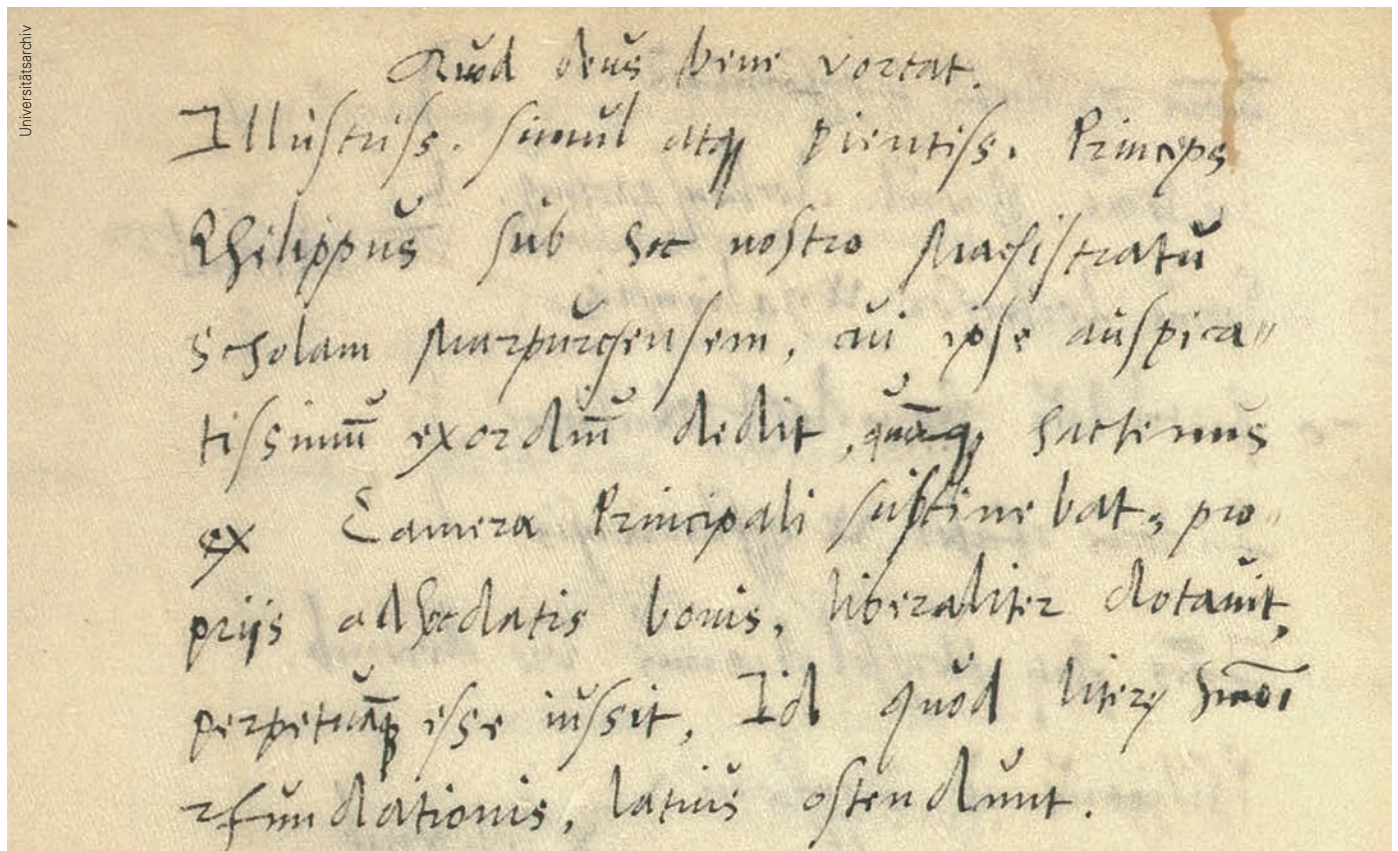 Universitätsarchiv
Quod deus bene vortat.
Illustriss. simul atq₃ pientiss. Princeps
Philippus sub hoc nostro Magistratu
Scholam Marpurgensem, cui ipse auspica〃
tissimū exordiū dedit, quāq₃ hactenus
ex Camera Principali sustinebat, pro〃
priis ad hoc datis bonis, liberaliter dotauit,
perpetuāq₃ esse iussit, Id quod literę
fundationis, latius ostendunt.